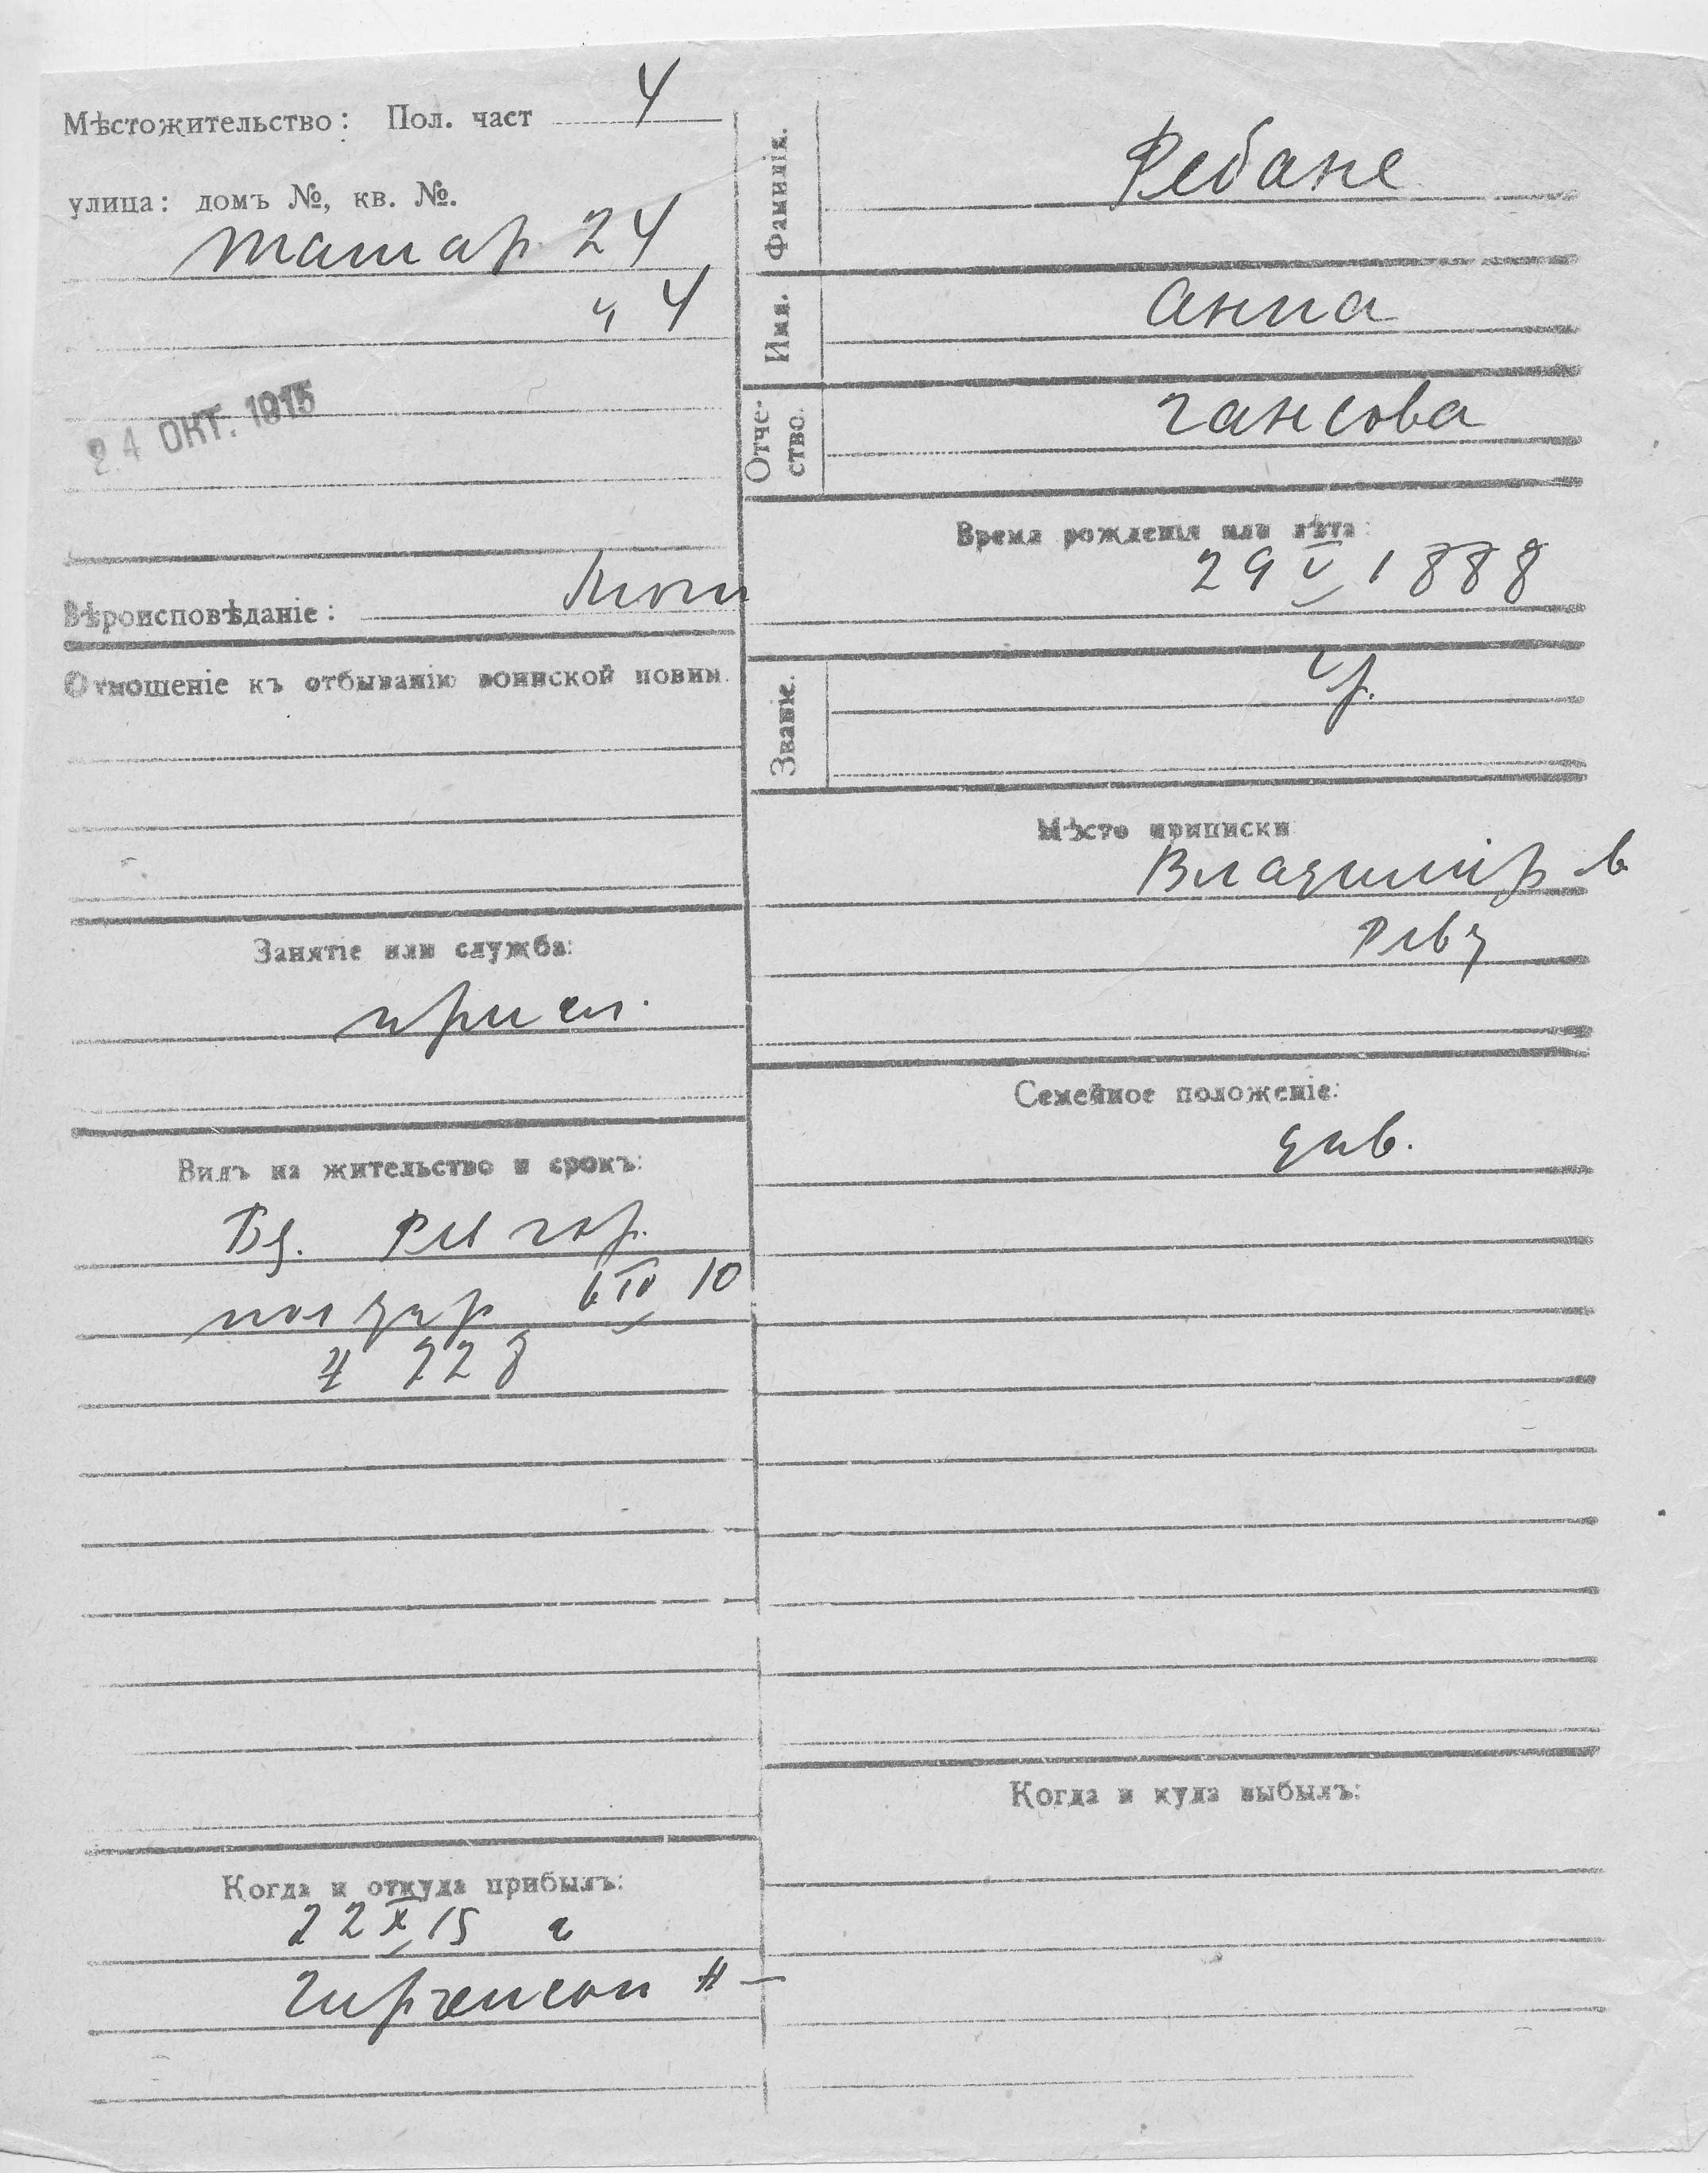 Мѣстожительство: Пол. част 4
улица: домъ №, кв. №.
Татар. 24
" 4
24 ОКТ. 1915
Вѣроисповѣданіе: Лют
Отношеніе къ отбыванію воинской повин.
Занятіе или служба:
присл.
Видъ на жительство и срокъ:
Бз. Рев гор.
полицір 6 III 10
№ 228
Когда и откуда прибылъ:
22 X 15 г
Фамилія. Ребане
Имя. Анна
Отчество. Гансова
Время рожденія или лѣта:
29 V 1888
Званіе. кр.
Мѣсто приписки
Владимір в
Рев у
Семейное положеніе:
дѣв.
Когда и куда выбылъ: